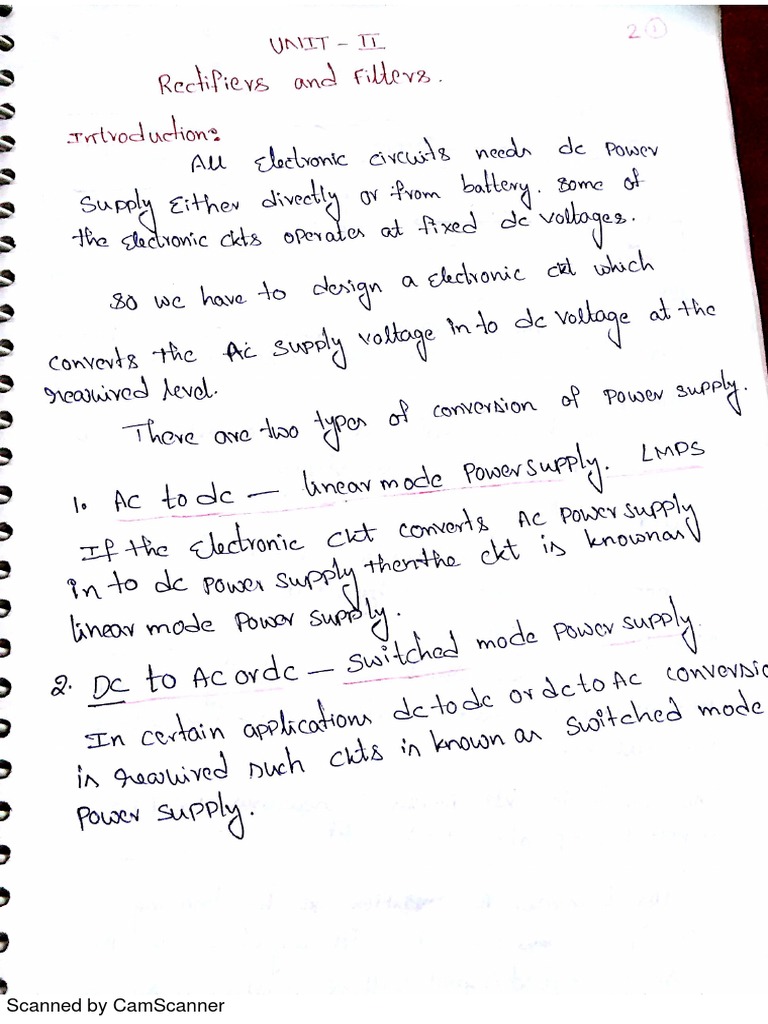 2 1
UNIT - II
Rectifiers and Filters.
Introduction:
All Electronic circuits needs dc power
supply Either directly or from battery. some of
the electronic ckts operates at fixed dc voltages.
so we have to design a electronic ckt which
converts the Ac supply voltage in to dc voltage at the
required level.
There are two types of conversion of power supply.
1. Ac to dc - linear mode Power supply. LMPS
If the Electronic ckt converts AC power supply
in to dc power supply then the ckt is known as
linear mode Power supply.
2. DC to Ac or dc - switched mode power supply
In certain applications dc to dc or dc to Ac conversio
is required such ckts is known as switched mode
Power supply.
Scanned by CamScanner